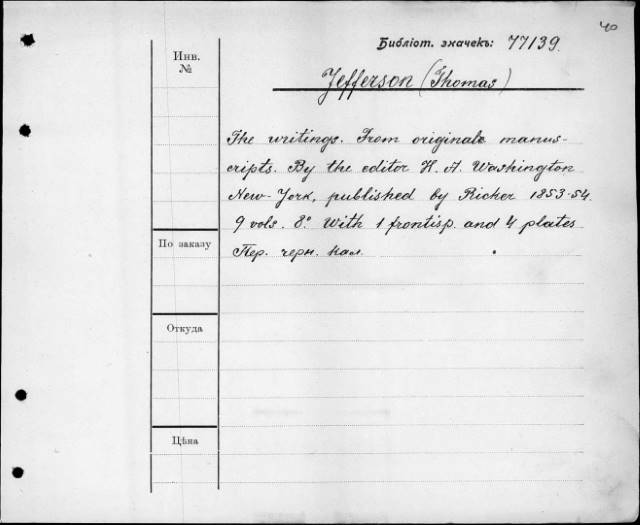 40
Библіот. значекъ: 77139.
Инв.
№
Jefferson (Thomas)
The writings. From originale manus-
cripts. By the editor H. A. Washington
New-York, published by Ricker 1853-54.
9 vols. 8º With 1 frontisp. and 4 plates
По заказу
Пер. черн. кал.
Откуда
Цѣна